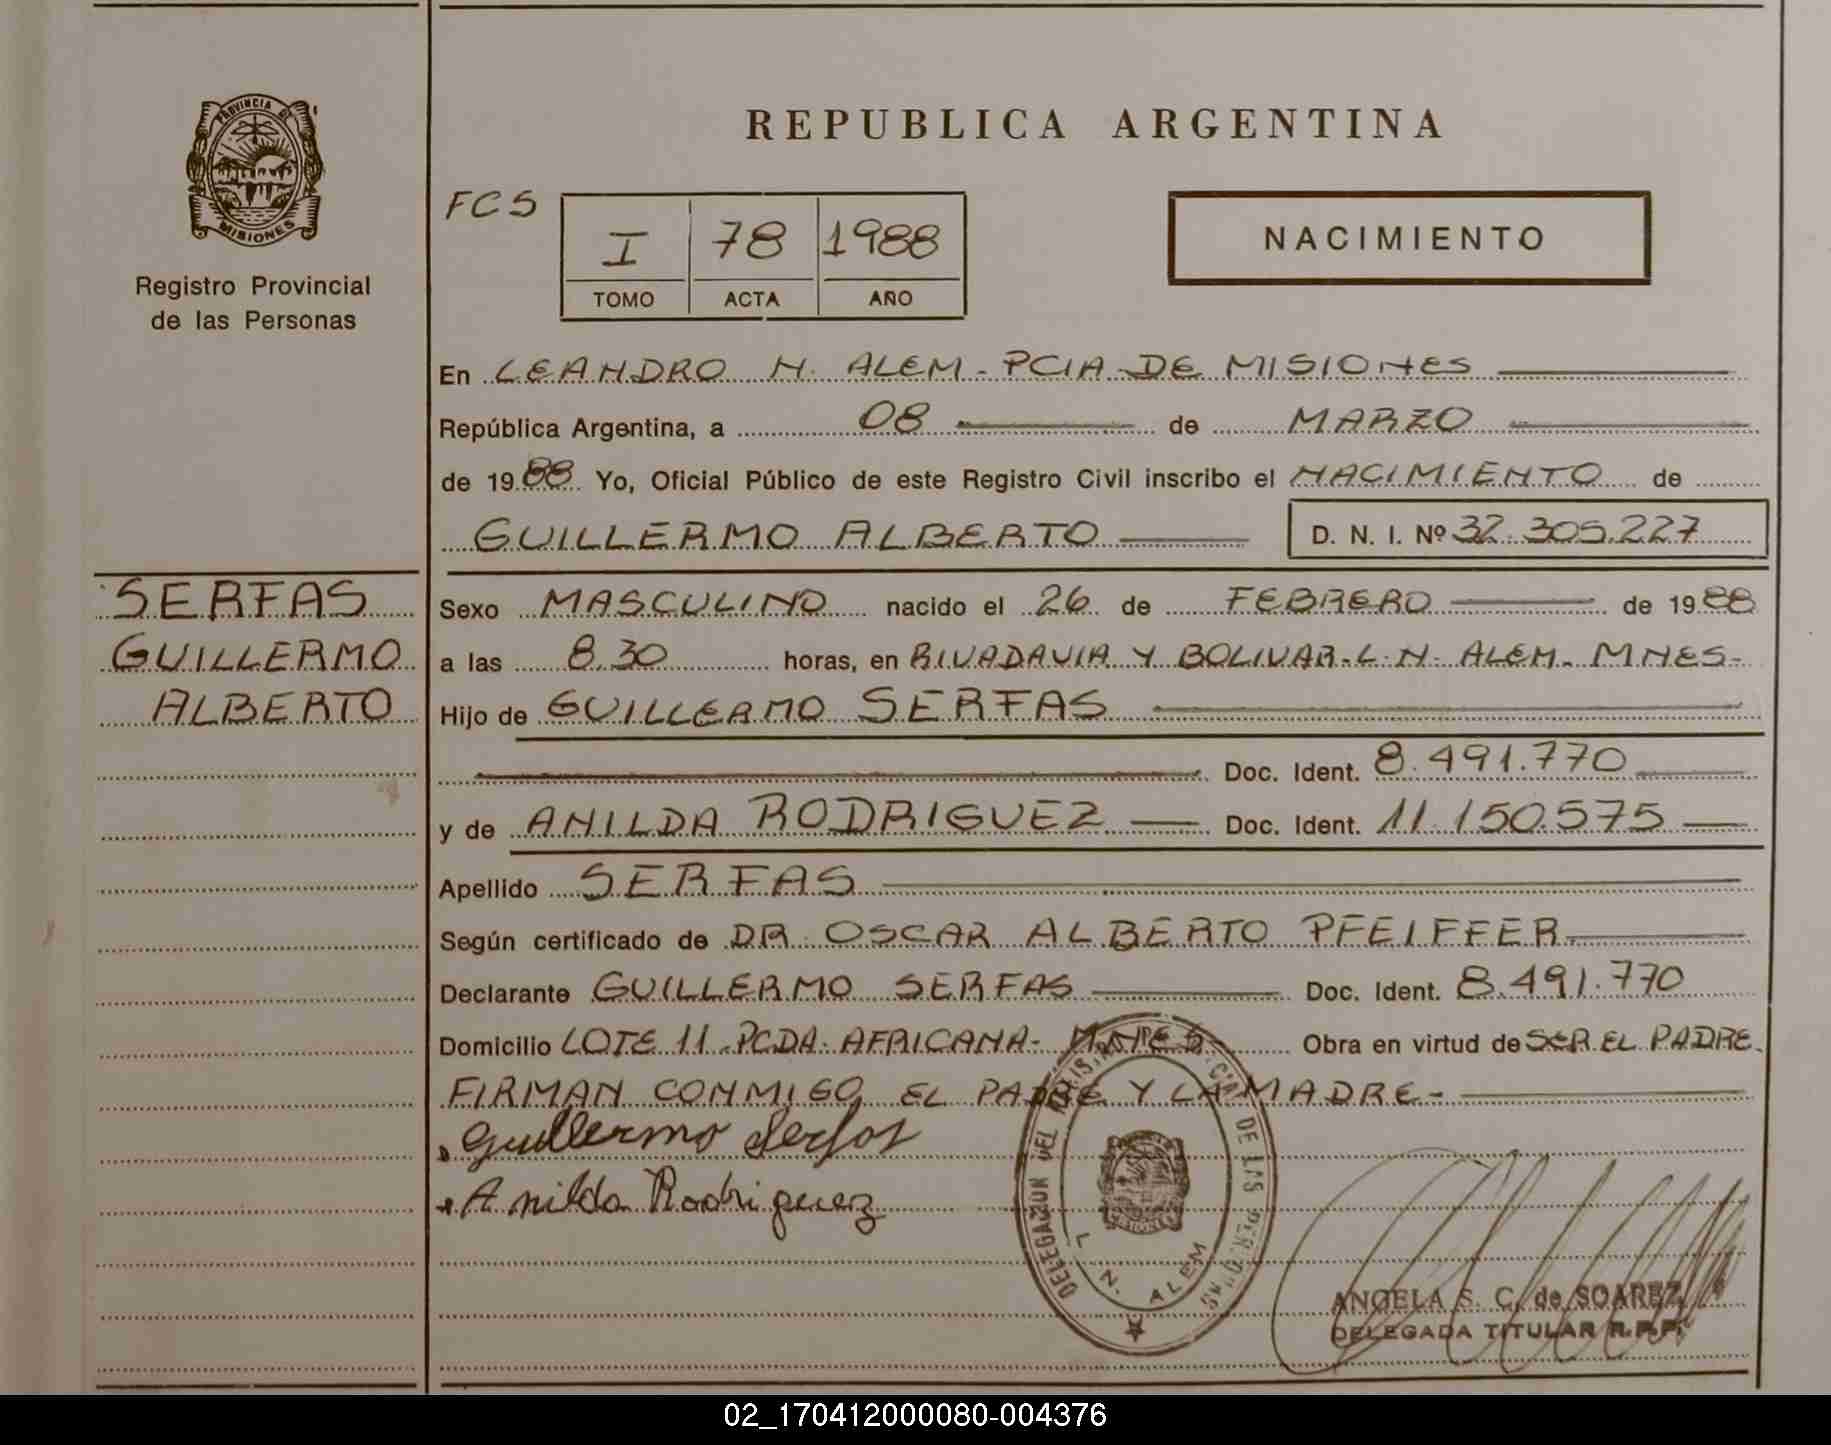 PROVINCIA DE
MISIONES
Registro Provincial
de las Personas
SERFAS
GUILLERMO
ALBERTO
REPUBLICA ARGENTINA
FCS
I 78 1988
TOMO ACTA AÑO
NACIMIENTO
En LEANDRO N. ALEM - PCIA DE MISIONES
República Argentina, a 08 de MARZO
de 1988 Yo, Oficial Público de este Registro Civil inscribo el NACIMIENTO de
GUILLERMO ALBERTO D. N. I. Nº 32.305.227
Sexo MASCULINO nacido el 26 de FEBRERO de 1988
a las 8.30 horas, en RIVADAVIA Y BOLIVAR-L-N- ALEM- MNES-
Hijo de GUILLERMO SERFAS
Doc. Ident. 8.491.770
y de ANILDA RODRIGUEZ Doc. Ident. 11.150.575
Apellido SERFAS
Según certificado de DR. OSCAR ALBERTO PFEIFFER
Declarante GUILLERMO SERFAS Doc. Ident. 8.491.770
Domicilio LOTE 11 PCDA. AFRICANA- MNES Obra en virtud de SER EL PADRE.
FIRMAN CONMIGO EL PADRE Y LA MADRE-
Guillermo Serfas
Anilda Rodriguez
DELEGACION DEL REGISTRO PROVINCIAL DE LAS PERSONAS
L. N. ALEM
ANGELA S. C. de SOAREZ
DELEGADA TITULAR R.P.P.
02_170412000080-004376